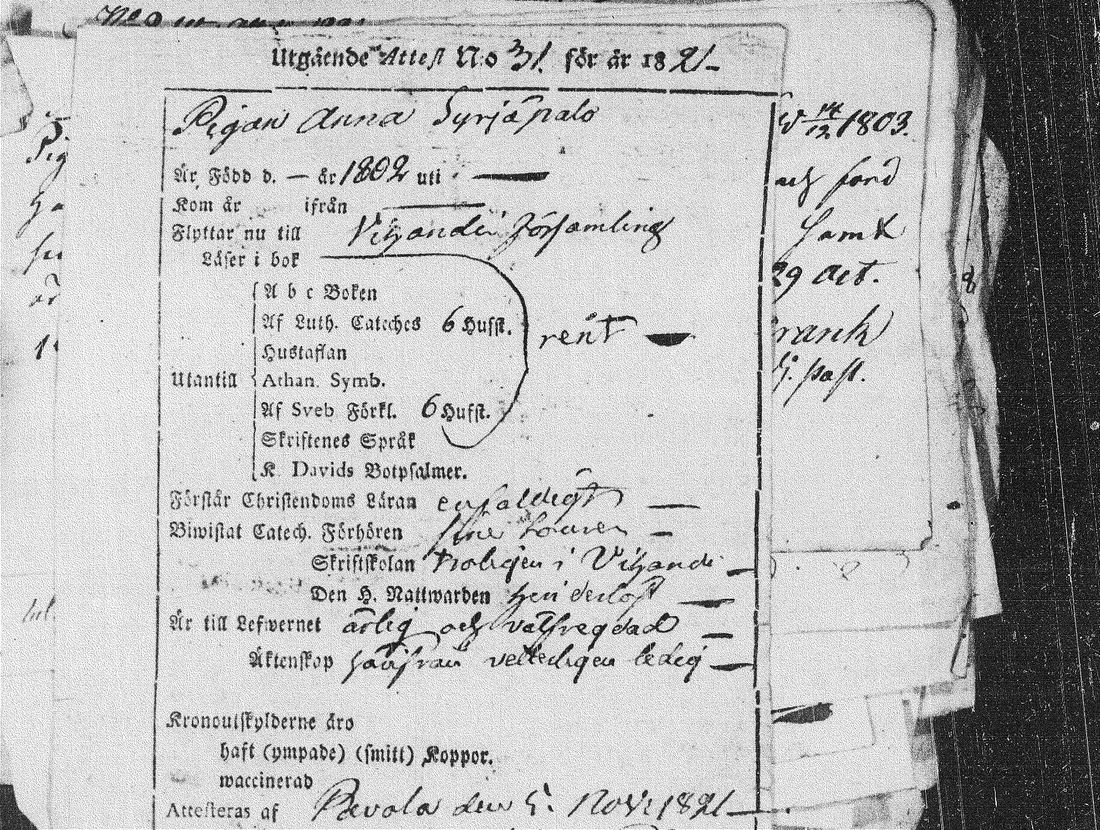 Utgående Attest N:o 31. för år 1821
Pigan Anna Syrjäpalo
Är Född d. — år 1802 uti —
Kom år ifrån —
Flyttar nu till Vihandi församling
Läser i bok
A b c Boken
Af Luth. Cateches 6 Hufst.
rent —
Hustaflan
Utantill Athan. Symb.
Af Sveb Förkl. 6 Hufst.
Skriftenes Språk
K. Davids Botpsalmer.
Förstår Christendoms Läran enfaldigt —
Biwistat Catech. Förhören —
Skriftskolan troligen i Vihandi —
Den H. Nattwarden —
Är till Lefwernet ärlig och välfregdad —
Äktenskap härifrån veterligen ledig —
Kronoutskylderne äro
haft (ympade) (smitt) Koppor.
waccinerad
Attesteras af Revola den 5. Nov. 1821 —
14/12 1803.
och
samt
29 Oct.